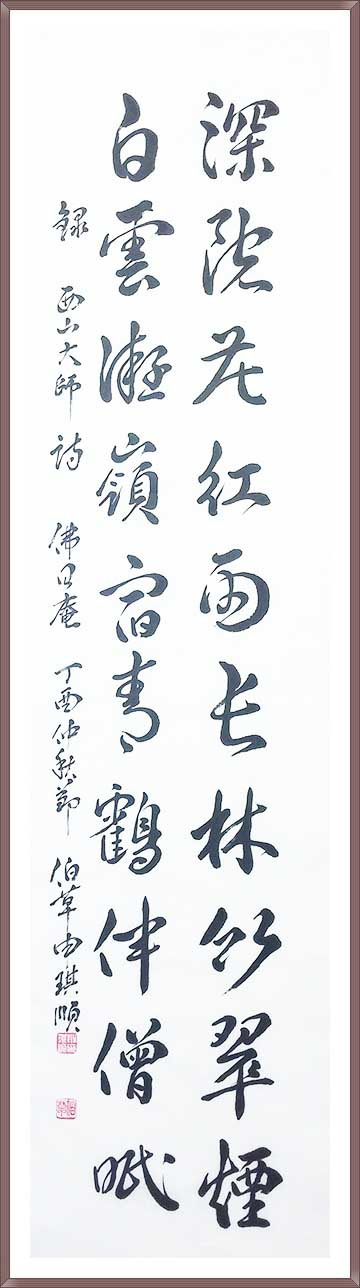 深院花紅雨長林竹翠煙
白雲凝嶺宿青鶴伴僧眠
録 西山大師 詩 佛日庵 丁酉仲秋節 伯草由琪順